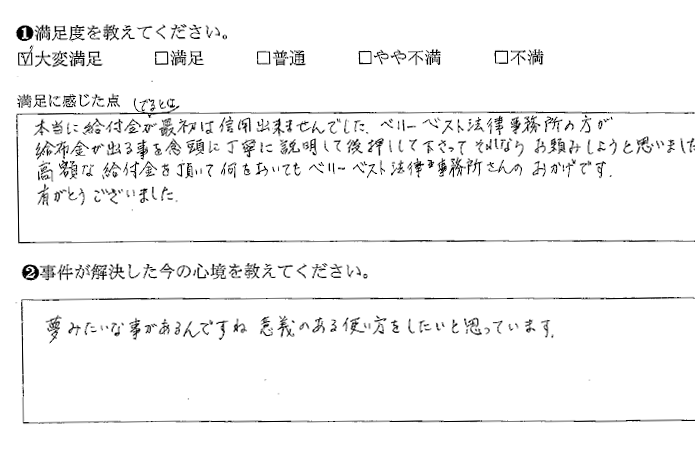 ❶満足度を教えてください。
☑大変満足 □満足 □普通 □やや不満 □不満
満足に感じた点
でるとは
本当に給付金が最初は信用出来ませんでした。ベリーベスト法律事務所の方が
給布金が出る事を念頭に丁寧に説明して後押しして下さって それなら お頼みしようと思いました
高額な給付金を頂いて何をおいてもベリーベスト法律事務所さんの おかげです。
有がとうございました。
❷事件が解決した今の心境を教えてください。
夢みたいな事があるんですね 意義のある使い方をしたいと思っています。